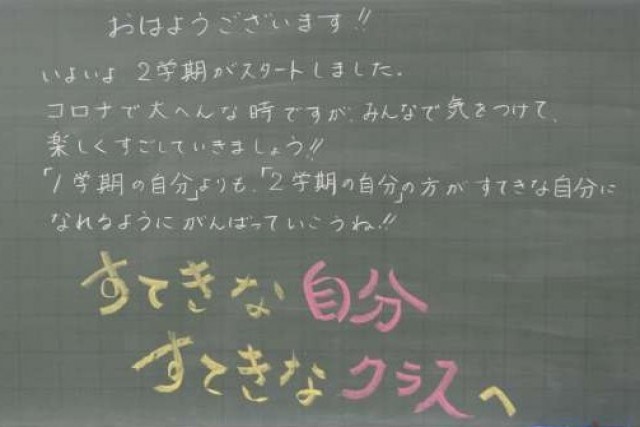 おはようございます!!
いよいよ 2学期がスタートしました。
コロナで大へんな時ですが、みんなで気をつけて、
楽しくすごしていきましょう!!
「1学期の自分」よりも、「2学期の自分」の方が すてきな自分に
なれるようにがんばっていこうね!!
すてきな自分
すてきなクラスへ